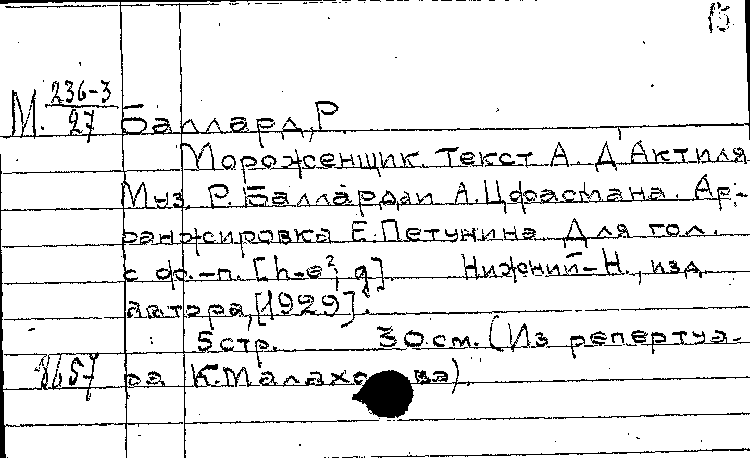 15
М. 236-3
27 Баллард, Р.
Мороженщик. Текст А. Д'Актиля
Муз. Р. Баллардаи А. Цфасмана. Ар-
ранжировка Е. Петунина. Для гол.
с фо.-п. [h-e², g]. Нижний-Н., изд.
автора, [1929].
5 стр. 30 см. (Из репертуа-
8657 ра К. Малахо ва).